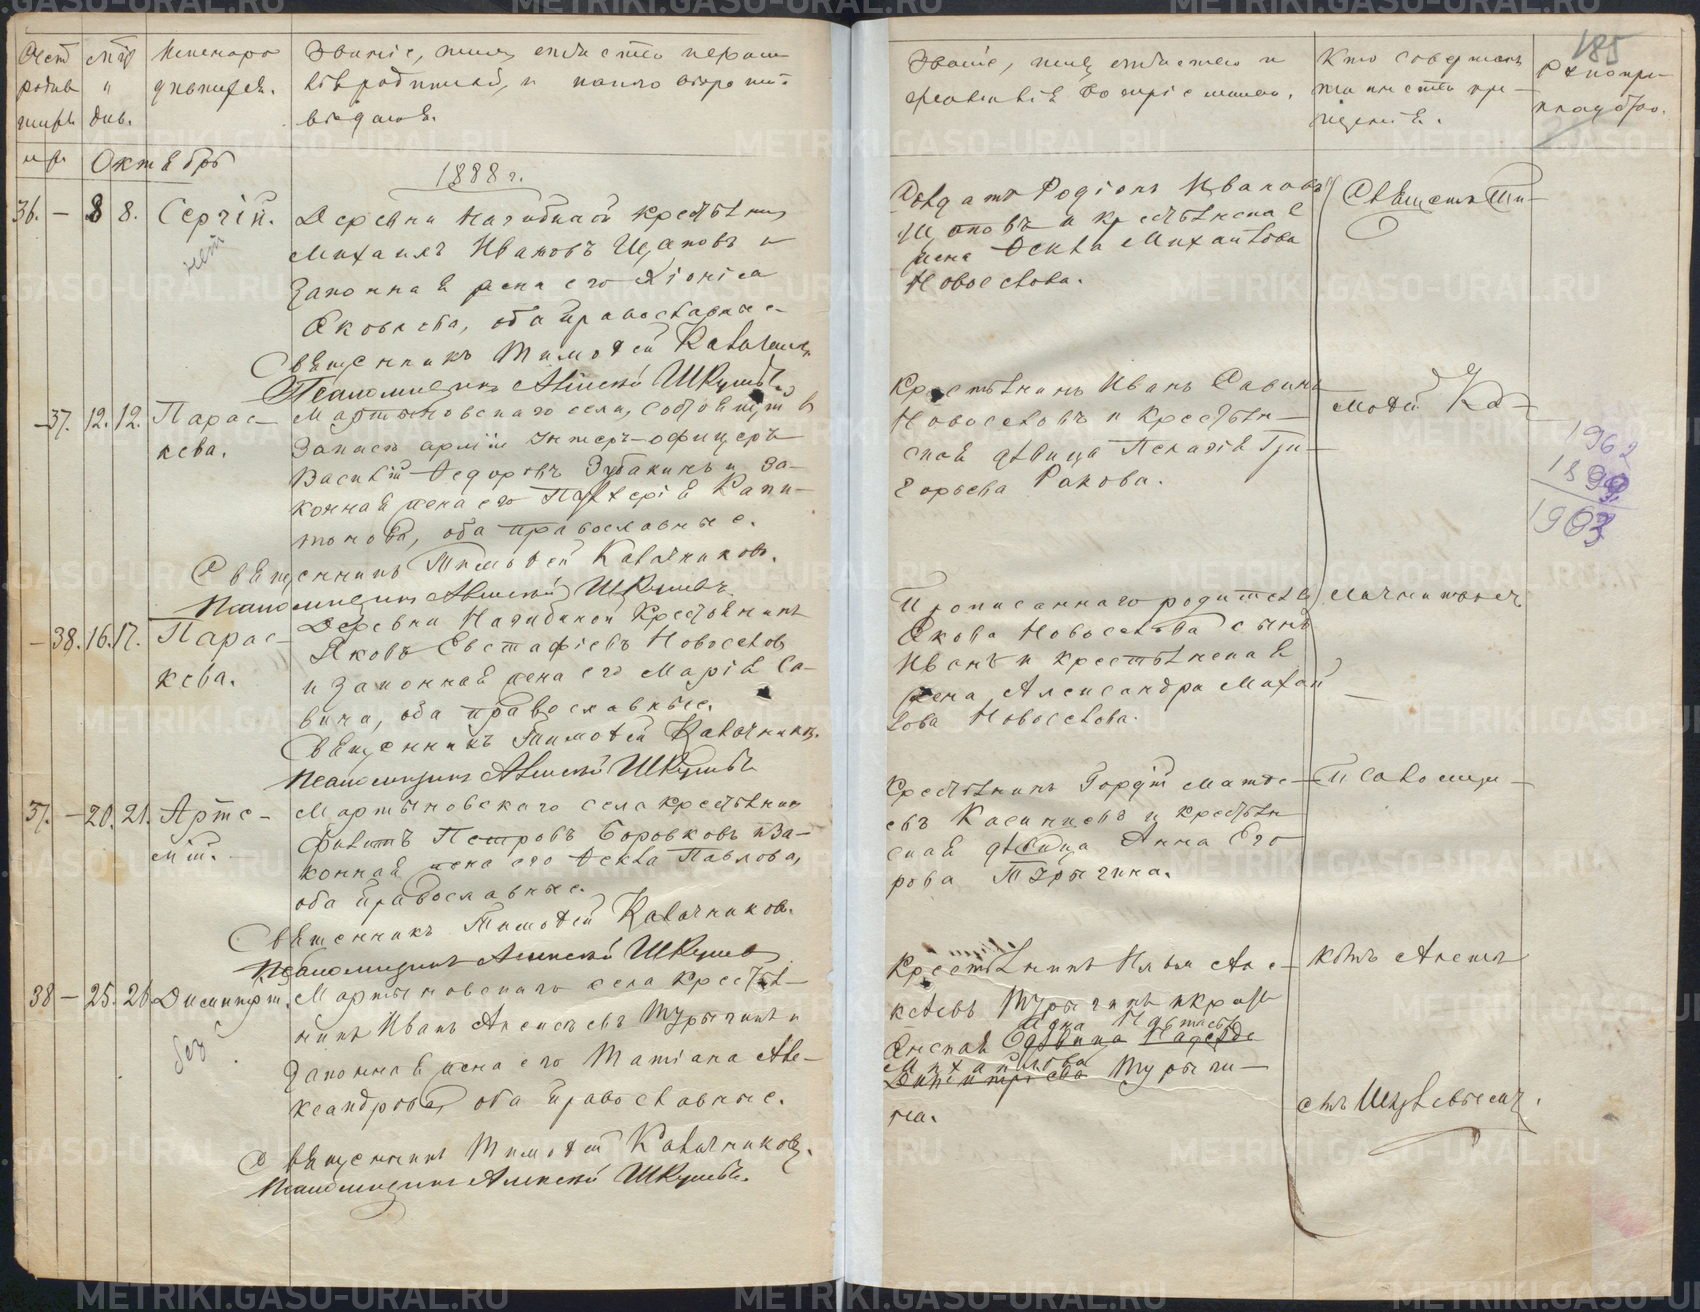 185
Счетъ родив- шихся
М-цъ и день.
Имена ро- дившихся.
Званіе, имя, отчество и фами-
лія родителей, и какого вѣроис-
вѣданія.
Званіе, имя, отчество и
фамилія воспріемниковъ.
Кто совершалъ
таинство кре-
щенія.
Рукопри-
кладство.
м. ж.
Октябрь
1888 г.
36. — 8 8. Сергій.
Деревни Нагибиной крестьянинъ
Михаилъ Ивановъ Щаповъ и
законная жена его Діонісія
Яковлева, оба православные
Священникъ Тимофей Калачниковъ
Псаломщикъ Алексѣй Шкулевъ
Солдатъ Родіонъ Ивановъ
Щаповъ и крестьянская
жена Фекла Михайлова
Новоселова.
Священникъ Ти-
нет
— 37. 12. 12. Парас-
кева.
Мартыновскаго села, состоящій въ
запасѣ арміи унтеръ-офицеръ
Василій Федоровъ Зубакинъ и за-
конная жена его Глѵкерія Капи-
тонова, оба православные.
Священникъ Тимофей Калачниковъ.
Псаломщикъ Алексѣй Шкулевъ
Крестьянинъ Иванъ Савинъ
Новоселовъ и крестьян-
ская дѣвица Пелагія Гри-
горьева Ракова.
мофей Ка-
1962
1899
1903
— 38. 16. 17. Парас-
кева.
Деревни Нагибиной крестьянинъ
Яковъ Евстафіевъ Новоселовъ
и законная жена его Марія Са-
вина, оба православные.
Священникъ Тимофей Калачниковъ.
Псаломщикъ Алексѣй Шкулевъ
Прописаннаго родителя
Якова Новоселова сынъ
Иванъ и крестьянская
жена Александра Михай
лова Новоселова.
лачниковъ съ
37. — 20. 21. Арте-
мій.
Мартыновскаго села крестьянинъ
Филатъ Петровъ Боровковъ и за-
конная жена его Фекла Павлова,
оба православные.
Священникъ Тимофей Калачниковъ.
Псаломщикъ Алексѣй Шкулевъ
Крестьянинъ Гордѣй Матве-
евъ Касинцевъ и крестьян
ская дѣвица Анна Его
рова Турыгина.
Псаломщи-
38 — 25. 26 Димитрій.
Мартыновскаго села крестья-
нинъ Иванъ Алексѣевъ Турыгинъ и
законная жена его Татіана Але-
ксандрова, оба православные.
Священникъ Тимофей Калачниковъ.
Псаломщикъ Алексѣй Шкулевъ.
Крестьянинъ Илья Але-
ксѣевъ Турыгинъ и кресть
янская дѣвица Надежда
Михайлова
Димитріева Турыги-
на.
комъ Алексѣ
емъ Шкулевымъ.
без
METRIKI.GASO-URAL.RU